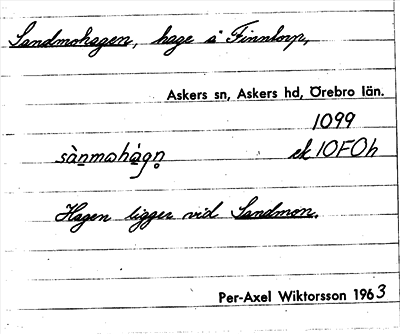 Sandmohagen, hage å Finntorp,
Askers sn, Askers hd, Örebro län.
1099
sànmohágn̥ ek 10F0h
Hagen ligger vid Sandmon.
Per-Axel Wiktorsson 1963